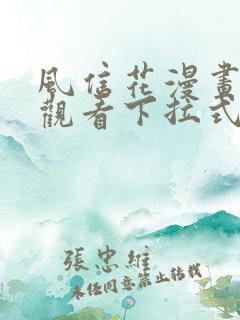 風信花漫畫
觀看下拉式
張忠維
未经同意禁止转载